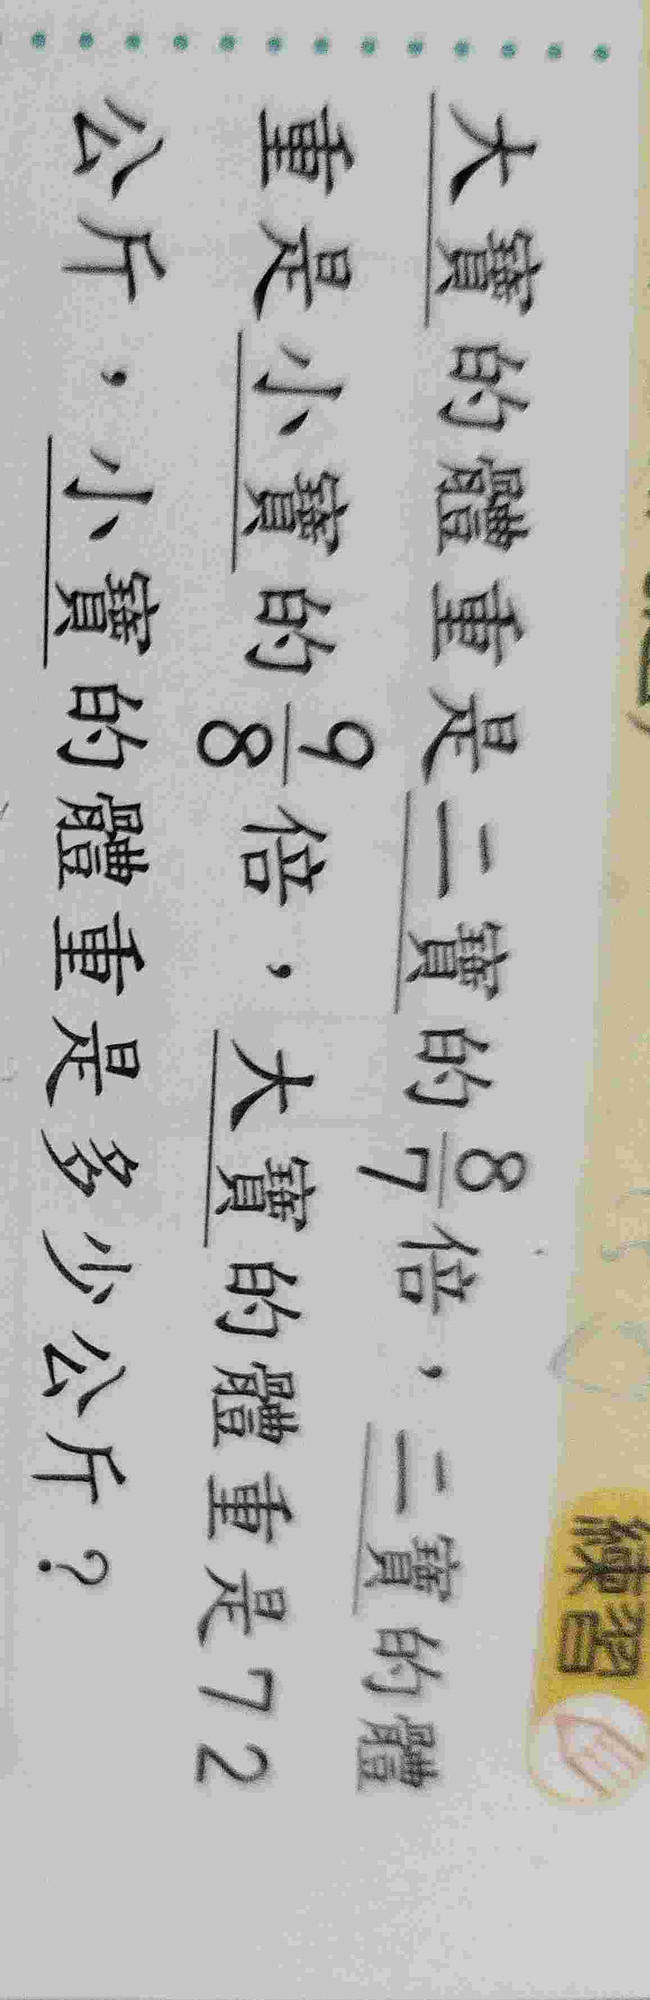 練習
大寶的體重是二寶的8/7倍，二寶的體
重是小寶的9/8倍，大寶的體重是72
公斤，小寶的體重是多少公斤？